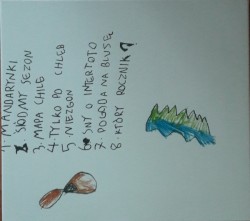 1. MANDARYNKI
2 SIÓDMY SEZON
3. MAPA CHILE
4 TYLKO PO CHLEB
5. NIEZGON
6 SNY O INTERTOTO
7. POGADA NA BLUSĘ
8. KTÓRY ROCZNIK?